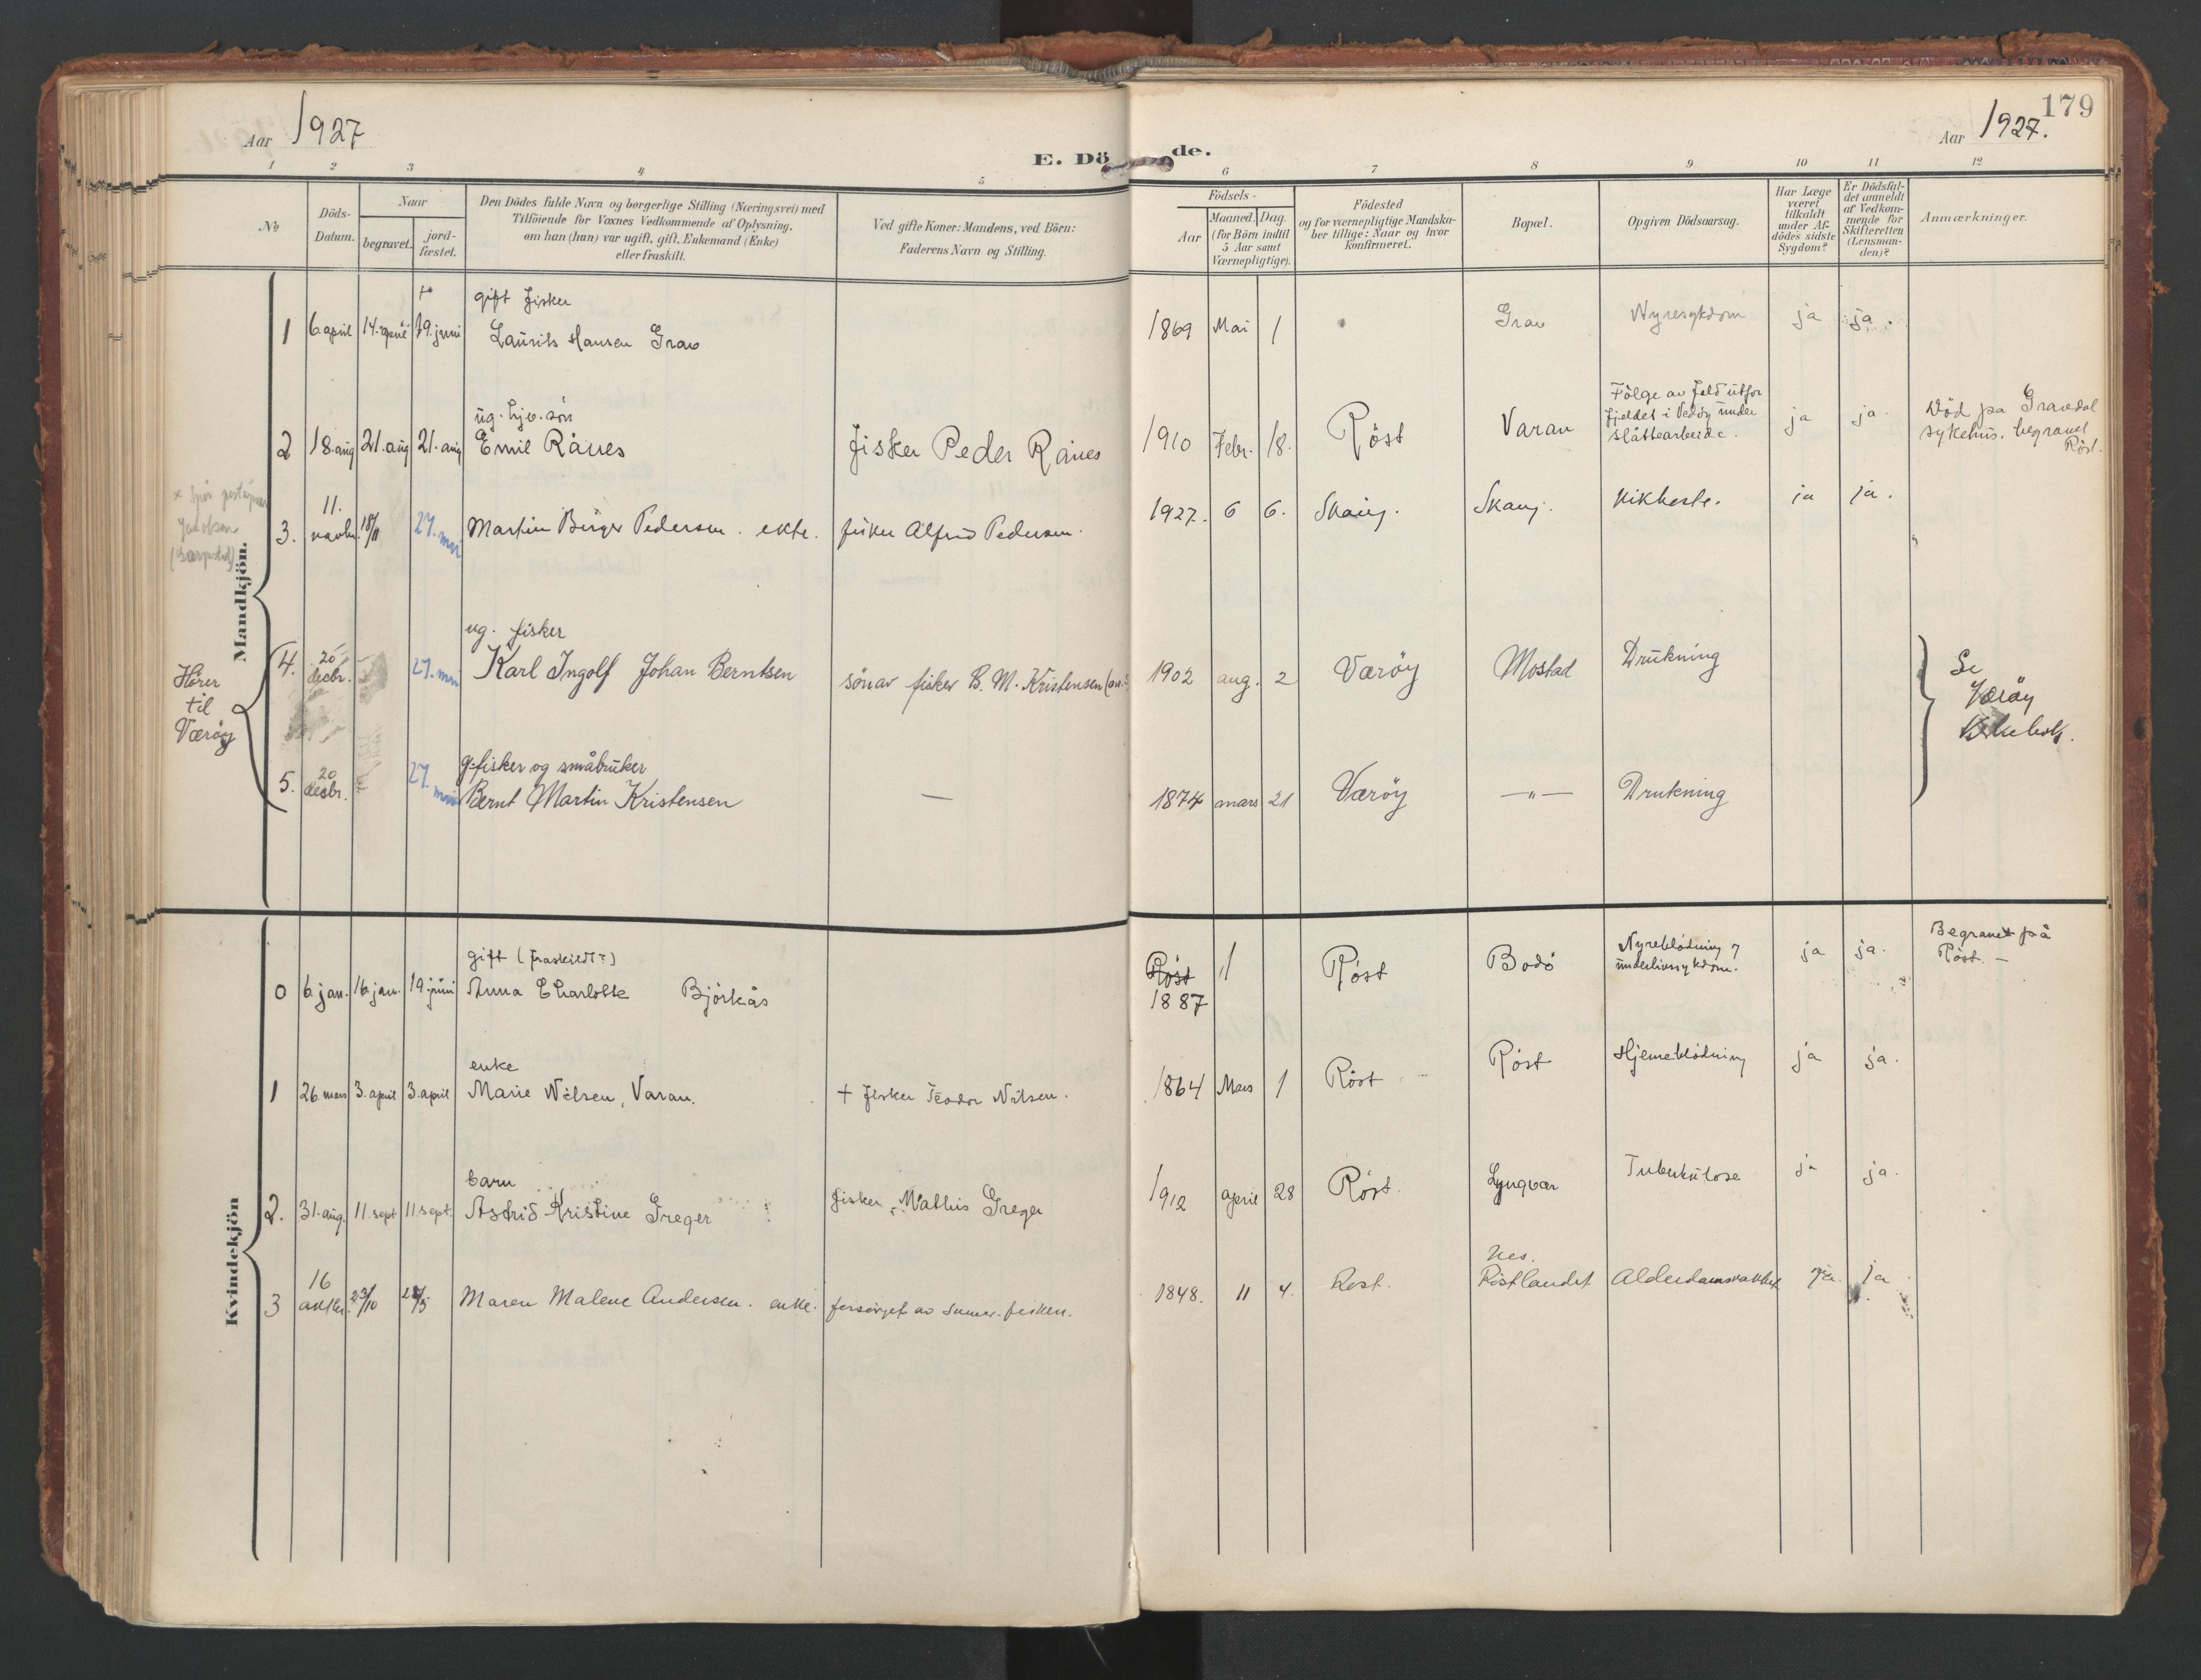 179
Aar 1927
Aar 1927.
E. Dö de.
1 2 3 4 5 6 7 8 9 10 11 12
No
Döds-
Datum.
Naar
begravet.
jord-
fæstet.
Den Dödes fulde Navn og borgerlige Stilling (Næringsvei) med
Tilföiende for Voxnes Vedkommende af Oplysning,
om han (hun) var ugift, gift, Enkemand (Enke)
eller fraskilt.
Ved gifte Koner: Mandens, ved Börn:
Faderens Navn og Stilling.
Födsels-
Aar
Maaned. Dag.
(for Börn indtil
5 Aar samt
Værnepligtige).
Födested
og for værnepligtige Mandska-
ber tillige: Naar og hvor
konfirmeret.
Bopæl.
Opgiven Dödsaarsag.
Har Læge
været
tilkaldt
under Af-
dödes sidste
Sygdom?
Er Dödsfal-
det anmeldt
af Vedkom-
mende for
Skifteretten
(Lensman-
den)?
Anmærkninger.
Mandkjön.
gift fisker
1 6. april 14. april 19. juni Laurits Hansen Grav 1869 Mai 1 Grav Nyresykdom ja ja.
ug. hjv. sön
2 18. aug 21. aug 21. aug Emil Rånes fisker Peder Rånes 1910 Febr. 18. Röst Varan
Fölge av fald utfor
fjeldet i Vedöy under
slåttearbeide.
ja ja.
Död på Gravdal
sykehus. begravet
Röst.
3. 11. novbr. 18/11 27. mai Martin Birger Pedersen. ekte. fisker Alfred Pedersen. 1927. 6 6. Skaug. Skauj. Kikhoste. ja ja.
Hörer
til
Værøy
ug. fisker
4. 20 decbr. 27. mai Karl Ingolf Johan Berntsen sön av fisker B. M. Kristensen 1902 aug. 2 Værøy Mostad Drukning
Se
Værøy
Kirkebok.
g. fisker og småbruker
5. 20 decbr. 27. mai Bernt Martin Kristensen — 1874 mars 21 Værøy —"— Drukning
Kvindekjön
gift (fraskildt?)
0 6 jan. 16 jan. 19. juni Anna Charlotte Björkås Röst 1887 1/1 Röst Bodö
Nyreblödning
underlivssykdom.
ja ja.
Begravet på
Röst. —
enke
1 26. mars 3. april 3. april Marie Nilsen, Varan. + fisker Teodor Nilsen. 1864 Mars 1 Röst Röst Hjerneblödning ja ja.
barn
2. 31. aug. 11. sept 11. sept. Astrid Kristine Greger fisker Mathis Greger 1912 april 28 Röst. Lyngvær Tuberkulose ja ja.
3 16 oktbr. 23/10 Maren Malene Andersen. enke. forsörget av sönner. fisker. 1848. 11 4. Röst.
Nes.
Röstlandet Alderdomssvakhet ja. ja